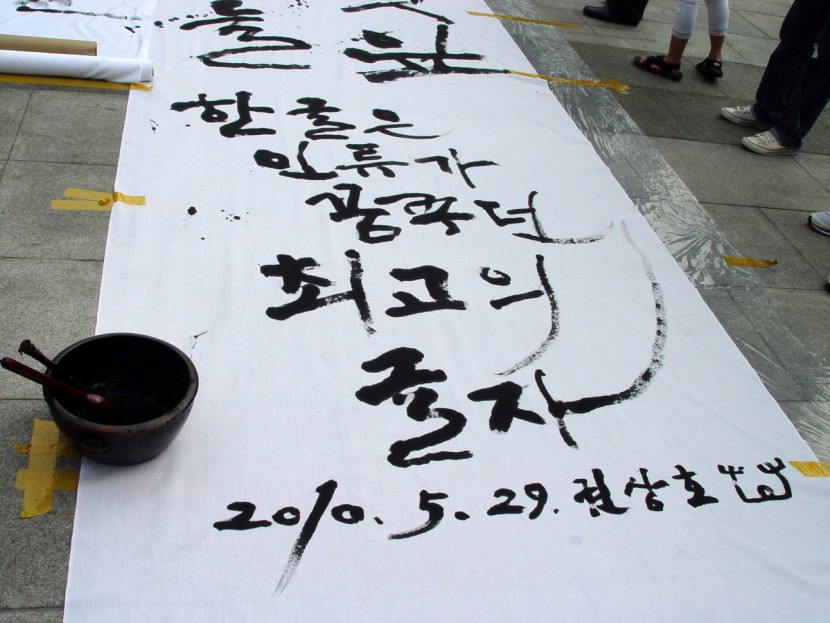 한글은
인류가
꿈꾸던
최고의
글자
2010. 5. 29. 권상호